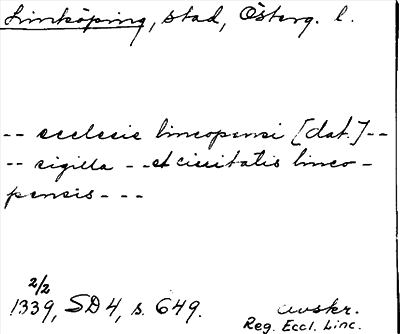 Linköping, stad, Österg. l.
-- ecclesie lincopensi [dat.]--
-- sigilla -- et ciuitatis linco-
pensis---
2/2
1339, SD 4, s. 649.
avskr.
Reg. Eccl. Linc.